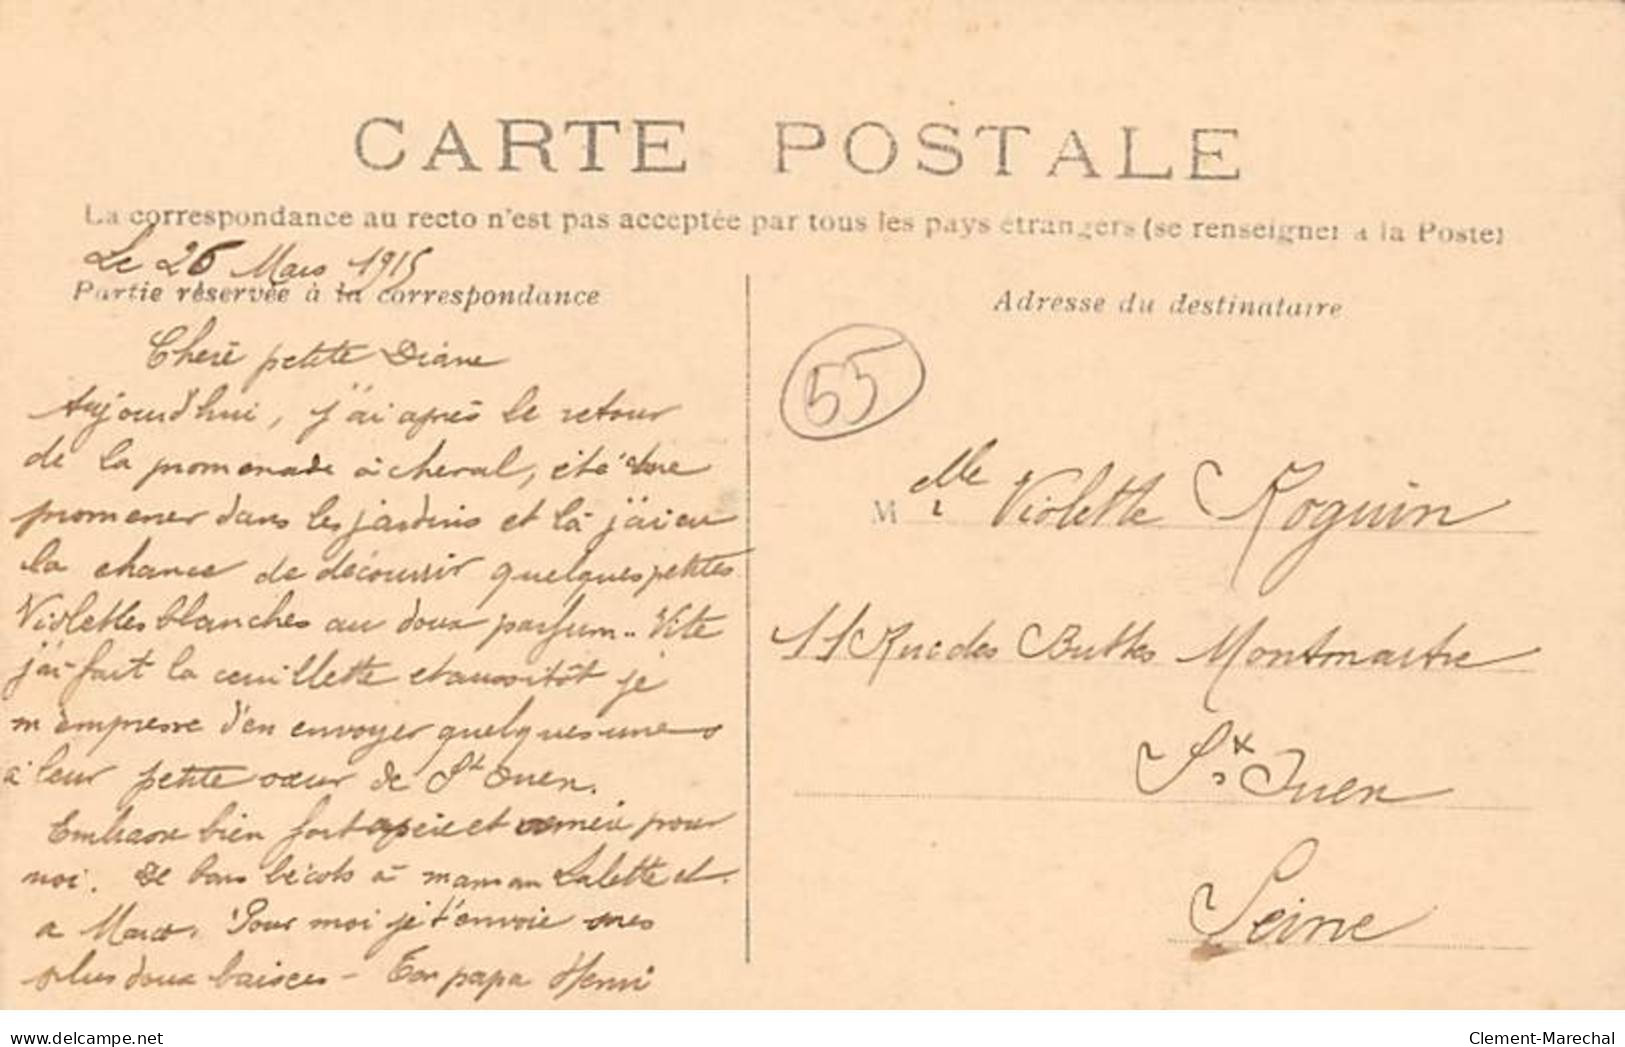 CARTE POSTALE
La correspondance au recto n'est pas acceptée par tous les pays étrangers (se renseigner à la Poste)
Le 26 Mars 1915
Partie réservée à la correspondance
Cheré petite Diane
Aujourd'hui, j'ai après le retour
de la promenade à cheval, été me
promener dans les jardins et là j'ai eu
la chance de découvrir quelques petites
Violettes blanches au doux parfum.. Vite
j'ai fait la cueillette et aussitôt je
m'empresse d'en envoyer quelques unes
a leur petite sœur de St Ouen.
Embrasse bien fort et pour
moi. De bons bécots à maman Lalette et
a Max. Pour moi je t'envoie mes
plus doux baisers - Ton papa Henri
Adresse du destinataire
55
Melle Violette Roguin
11 Rue des Buttes Montmartre
St Ouen
Seine
www.delcampe.net
Clement-Marechal